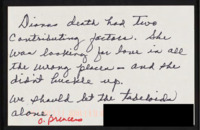 Dianas death had two
Contributing factors. She
was looking for love in all
the wrong places – and she
didn't buckle up.
We should let the tabeloids
alone